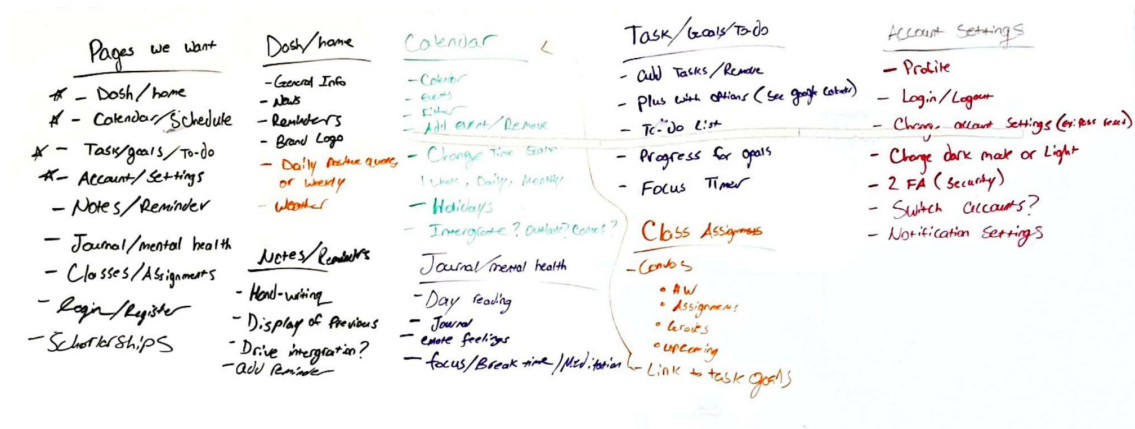 Pages we want
* - Dash/home
* - Calendar/Schedule
* - Task/goals/To-do
* - Account/Settings
- Notes/Reminder
- Journal/mental health
- Classes/Assignments
- Login/Register
- Schorlarships
Dash/home
- General Info
- News
- Reminders
- Brand Logo
- Daily Positive quotes
or weekly
- Weather
Notes/Reminders
- Hand-writing
- Display of Previous
- Drive intergration?
- add Reminder
Calendar
- Calendar
- Events
- Add event/Remove
- Change Time
Daily, Monthly
- Holidays
- Intergrate? Outlook? Canvas?
Journal/mental health
- Day reading
- Journal
- emote feelings
- focus/Break time/Meditation
Task/Goals/To-do
- add Tasks/Remove
- Plus with options (see google Calendar)
- To-do List
- Progress for goals
- Focus Timer
Class Assignments
- Canvas
• HW
• Assignments
• Grades
• upcoming
- Link to task goals
Account Settings
- Profile
- Login/Logout
- Change account settings (ex: Pass reset)
- Change dark mode or Light
- 2 FA (Security)
- Switch accounts?
- Notification Settings